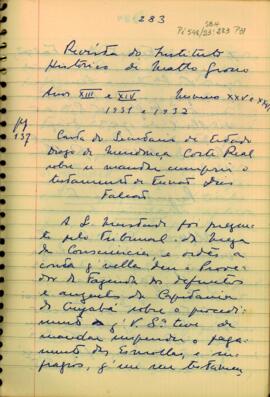 283
SBH
Pi 548/23:283 P51
Revista do Instituto
Histórico de Matto Grosso
Anos XIII e XIV Numeros XXV e XXVI
1931 e 1932
pg
137
Carta do Secretario de Estado
Diogo de Mendonça Corte Real
sobre o mandar cumprir o
testamento de
Falcão
A S. Magestade foi presente
pelo Tribunal da Mesa
da Consciencia, e ordens, a
conta q' della deu o Provedor
da Fazenda dos defuntos
e auzentes da Capitania
de Cuyabá sobre o procedimento
q' V. Sª teve de
mandar suspender o pagamento
das Esmollas, e sufragios,
q' em seu testamen